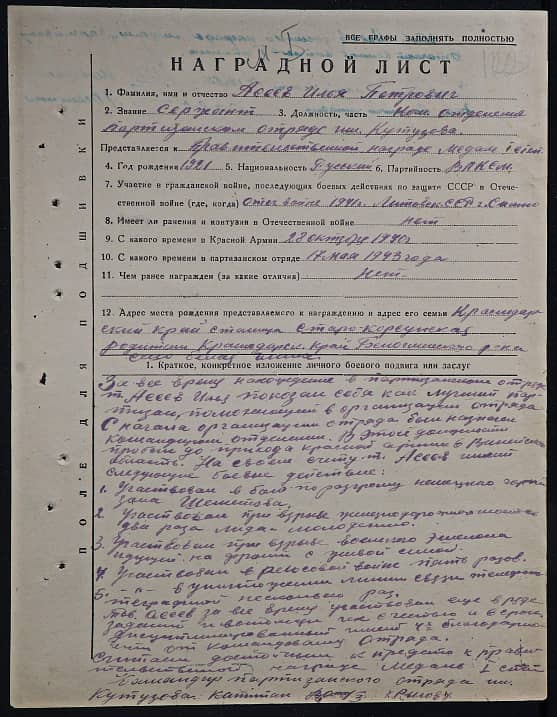 ВСЕ ГРАФЫ ЗАПОЛНЯТЬ ПОЛНОСТЬЮ
НАГРАДНОЙ ЛИСТ
1. Фамилия, имя и отчество Асеев Илья Петрович
2. Звание Сержант 3. Должность, часть Ком. отделения
партизанском отряде им. Кутузова.
Представляется к правительственной награде Медаль
4. Год рождения 1921 5. Национальность Русский 6. Партийность ВЛКСМ.
7. Участие в гражданской войне, последующих боевых действиях по защите СССР в Отече-
ственной войне (где, когда) Отеч. войне 1941г. Литовск. ССР г.
8. Имеет ли ранения и контузии в Отечественной войне нет
9. С какого времени в Красной Армии 28 октября 1940г
10. С какого времени в партизанском отряде 17 мая 1943 года
11. Чем ранее награжден (за какие отличия) Нет.
12. Адрес места рождения представляемого к награждению и адрес его семьи Краснодар-
ский край станица Старо-Корсунская
родители Краснодарск. Край р-на
село
1. Краткое, конкретное изложение личного боевого подвига или заслуг
За все время нахождение в партизанском отряде
т. Асеев Илья показал себя как лучший пар-
тизан, помогающий в организации отряда
С начала организации отряда был назначен
командиром отделения. В этой должности
пробыл до прихода красной армии в
область. На своем счету т. Асеев имеет
следующие боевые действие:
1. Участвовал в бою по разгрому немецкого гарни-
зона
2. Участвовал при взрыве железнодорожного моста
два раза Лида - Молодечно.
3. Участвовал при взрыве военного эшелона
идущий на фронт с живой силой.
4. Участвовал в рельсовой войне пять разов.
5. -"- в уничтожении линии связи телефонно
телеграфной несколько раз.
Тов. Асеев за все время участвовал еще в ряде
заданий и
дисциплинированный имеет 4 благодарно-
сти от командования отряда.
Считаем достойным к предст. к прави-
тельственной награде Медаль
Командир партизанского отряда им.
Кутузова капитан
ПОЛЕ ДЛЯ ПОДШИВКИ